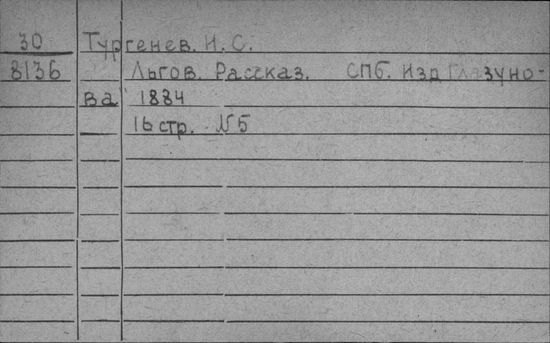 30 Тургенев. И. С.
8136 Льгов. Рассказ. СПб. Изд Глазуно-
ва 1884
16 стр. №5